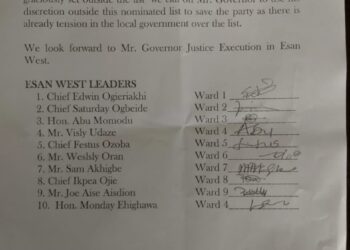 graciously set outside the list we call on Mr. Governor to use his
discretion outside this nominated list to save the party as there is
already tension in the local government over the list.
We look forward to Mr. Governor Justice Execution in Esan
West.
ESAN WEST LEADERS
1. Chief Edwin Ogieriakhi Ward 1
2. Chief Saturday Ogbeide Ward 2
3. Hon. Abu Momodu Ward 3
4. Mr. Visly Udaze Ward 4
5. Chief Festus Ozoba Ward 5
6. Mr. Weslsly Oran Ward 6
7. Mr. Sam Akhigbe Ward 7
8. Chief Ikpea Ojie Ward 8
9. Mr. Joe Aise Aisdion Ward 9
10. Hon. Monday Ehighawa Ward 4